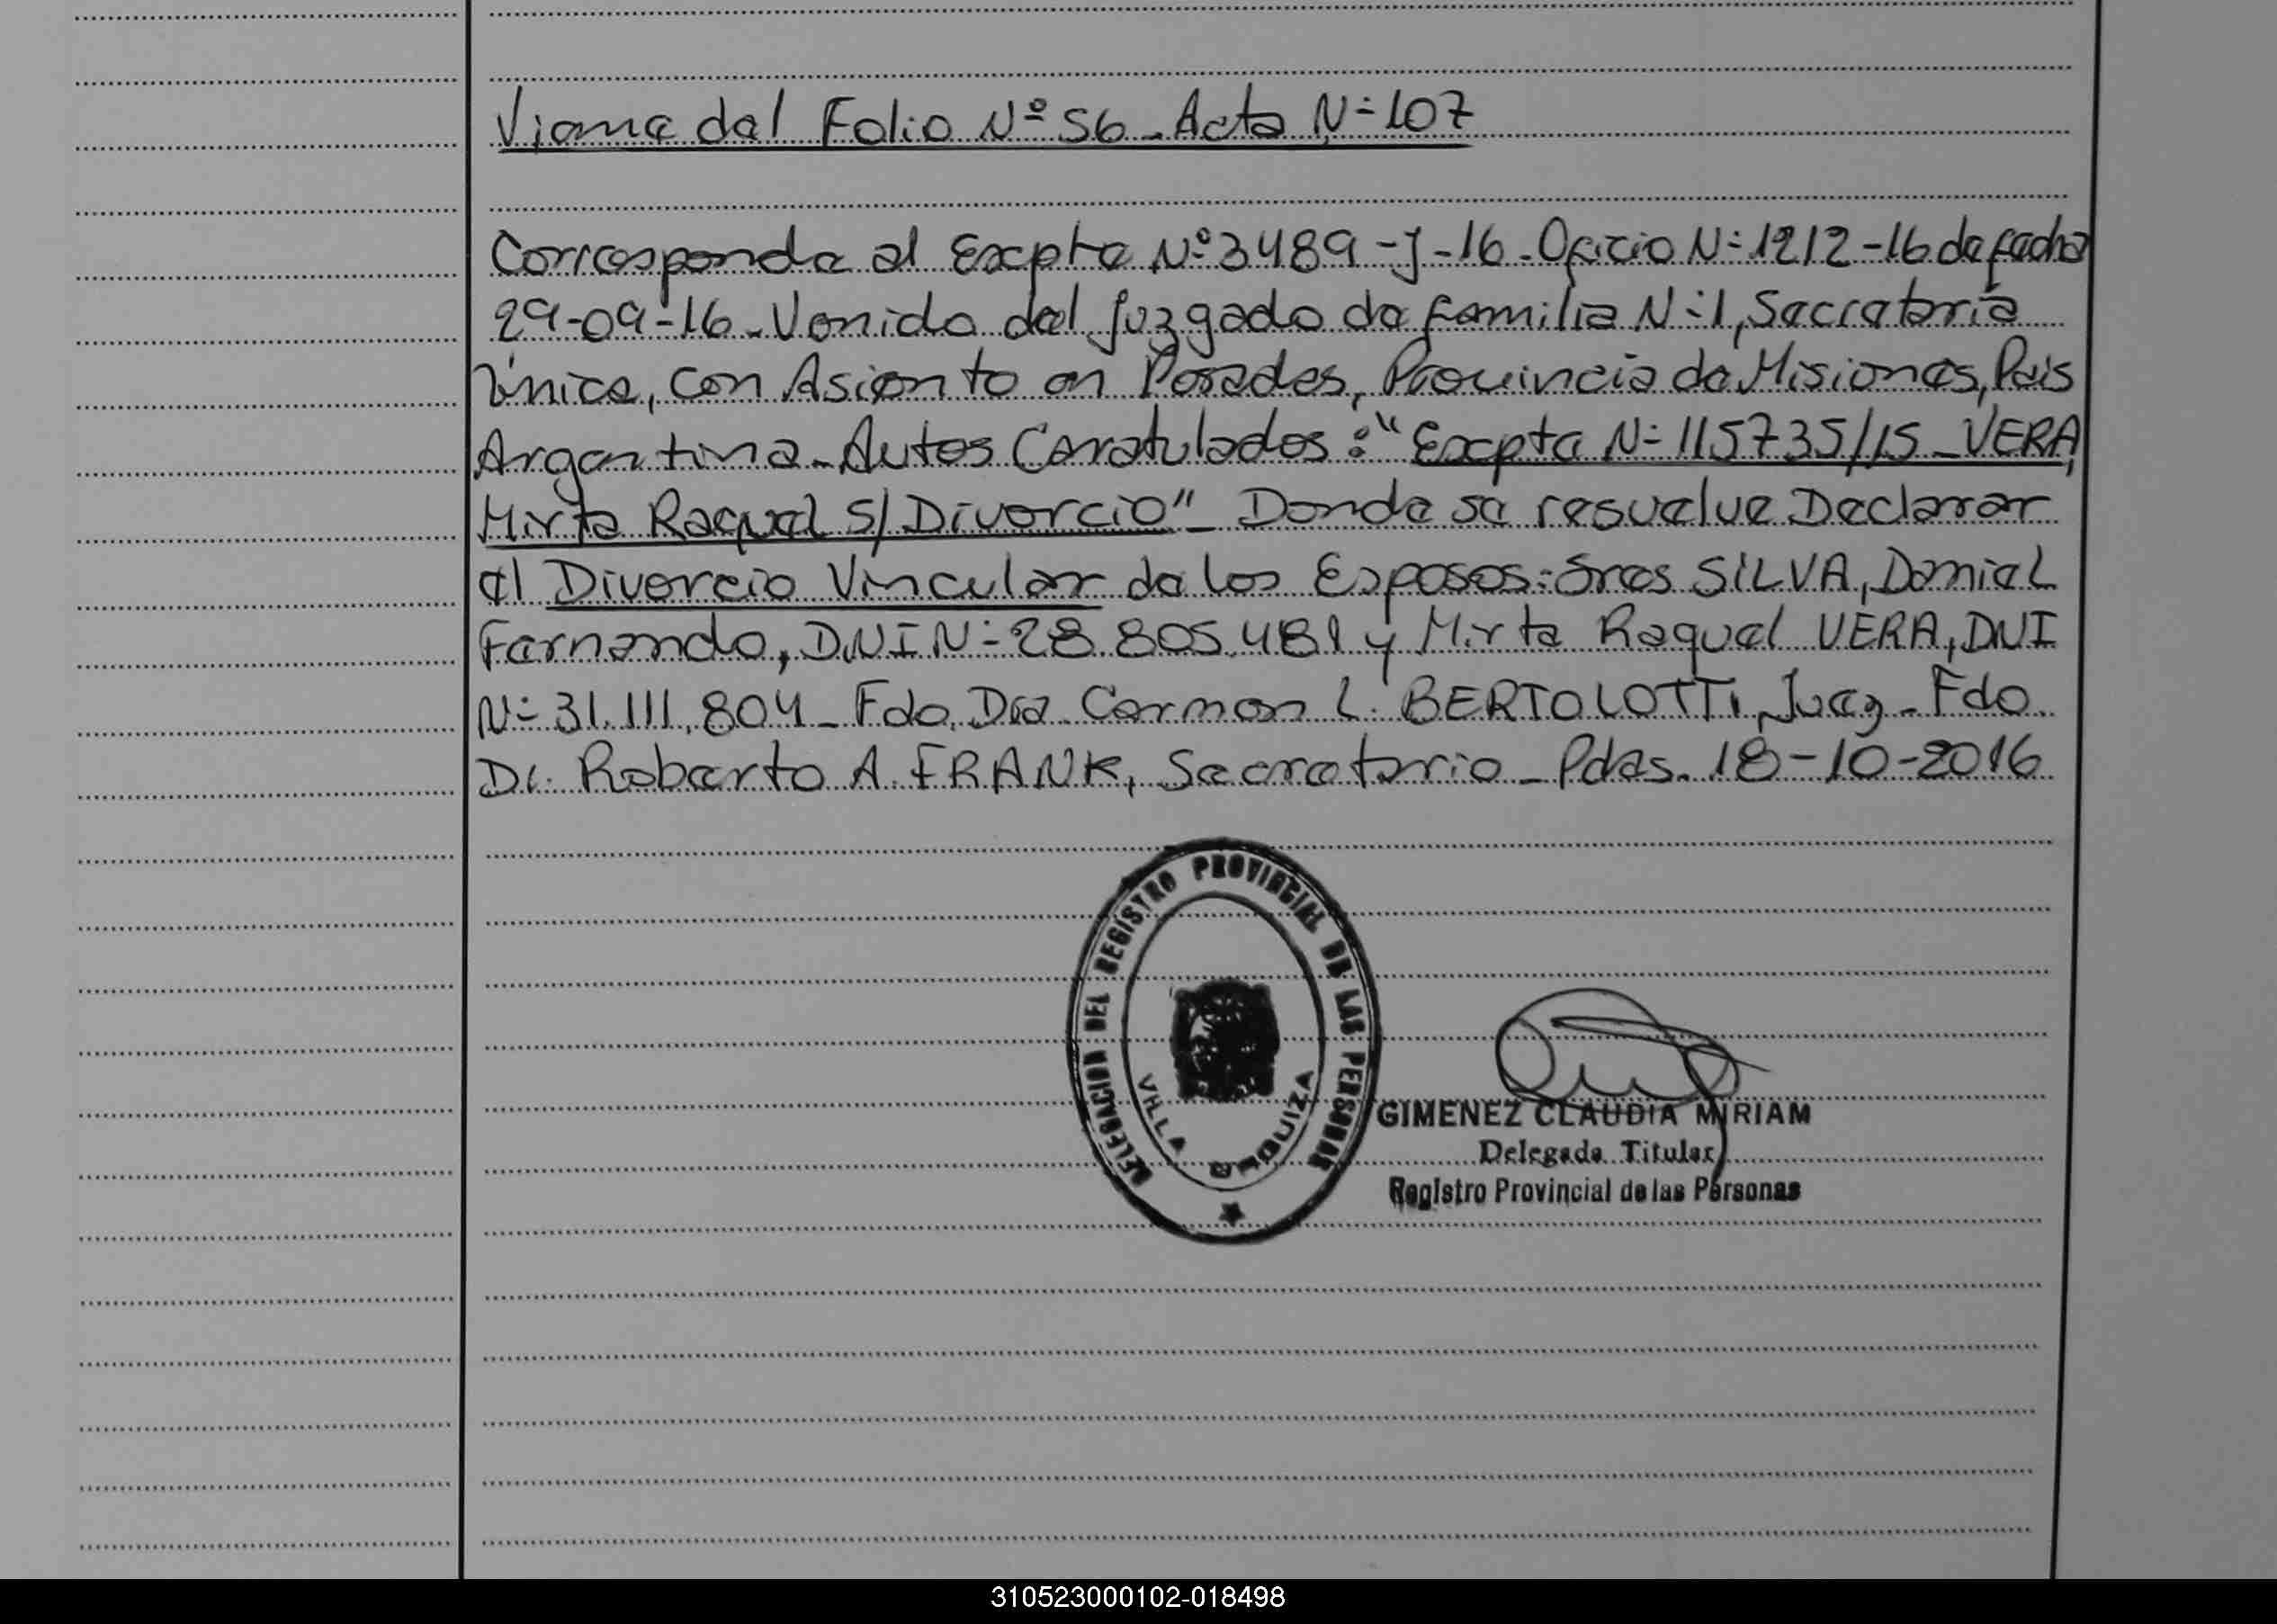 Viene del Folio Nº 56 - Acta Nº 107
Corresponde al Expte Nº 3489-J-16 - Oficio Nº 1212-16 de fecha
29-09-16 - Venido del Juzgado de familia Nº 1, Secretaría
Única, con Asiento en Posadas, Provincia de Misiones, País
Argentina - Autos Caratulados: "Expte Nº 115735/15 - VERA,
Mirta Raquel S/ Divorcio" - Donde se resuelve Declarar
el Divorcio Vincular de los Esposos: Sres SILVA, Daniel
Fernando, DNI Nº 28.805.481 y Mirta Raquel VERA, DNI
Nº 31.111.804 - Fdo. Dra. Carmen L. BERTOLOTTI, Juez - Fdo.
Dr. Roberto A. FRANK, Secretario - Pdas. 18-10-2016
DELEGACION DEL REGISTRO PROVINCIAL DE LAS PERSONAS
VILLA URQUIZA
GIMENEZ CLAUDIA MIRIAM
Delegada Titular
Registro Provincial de las Personas
310523000102-018498